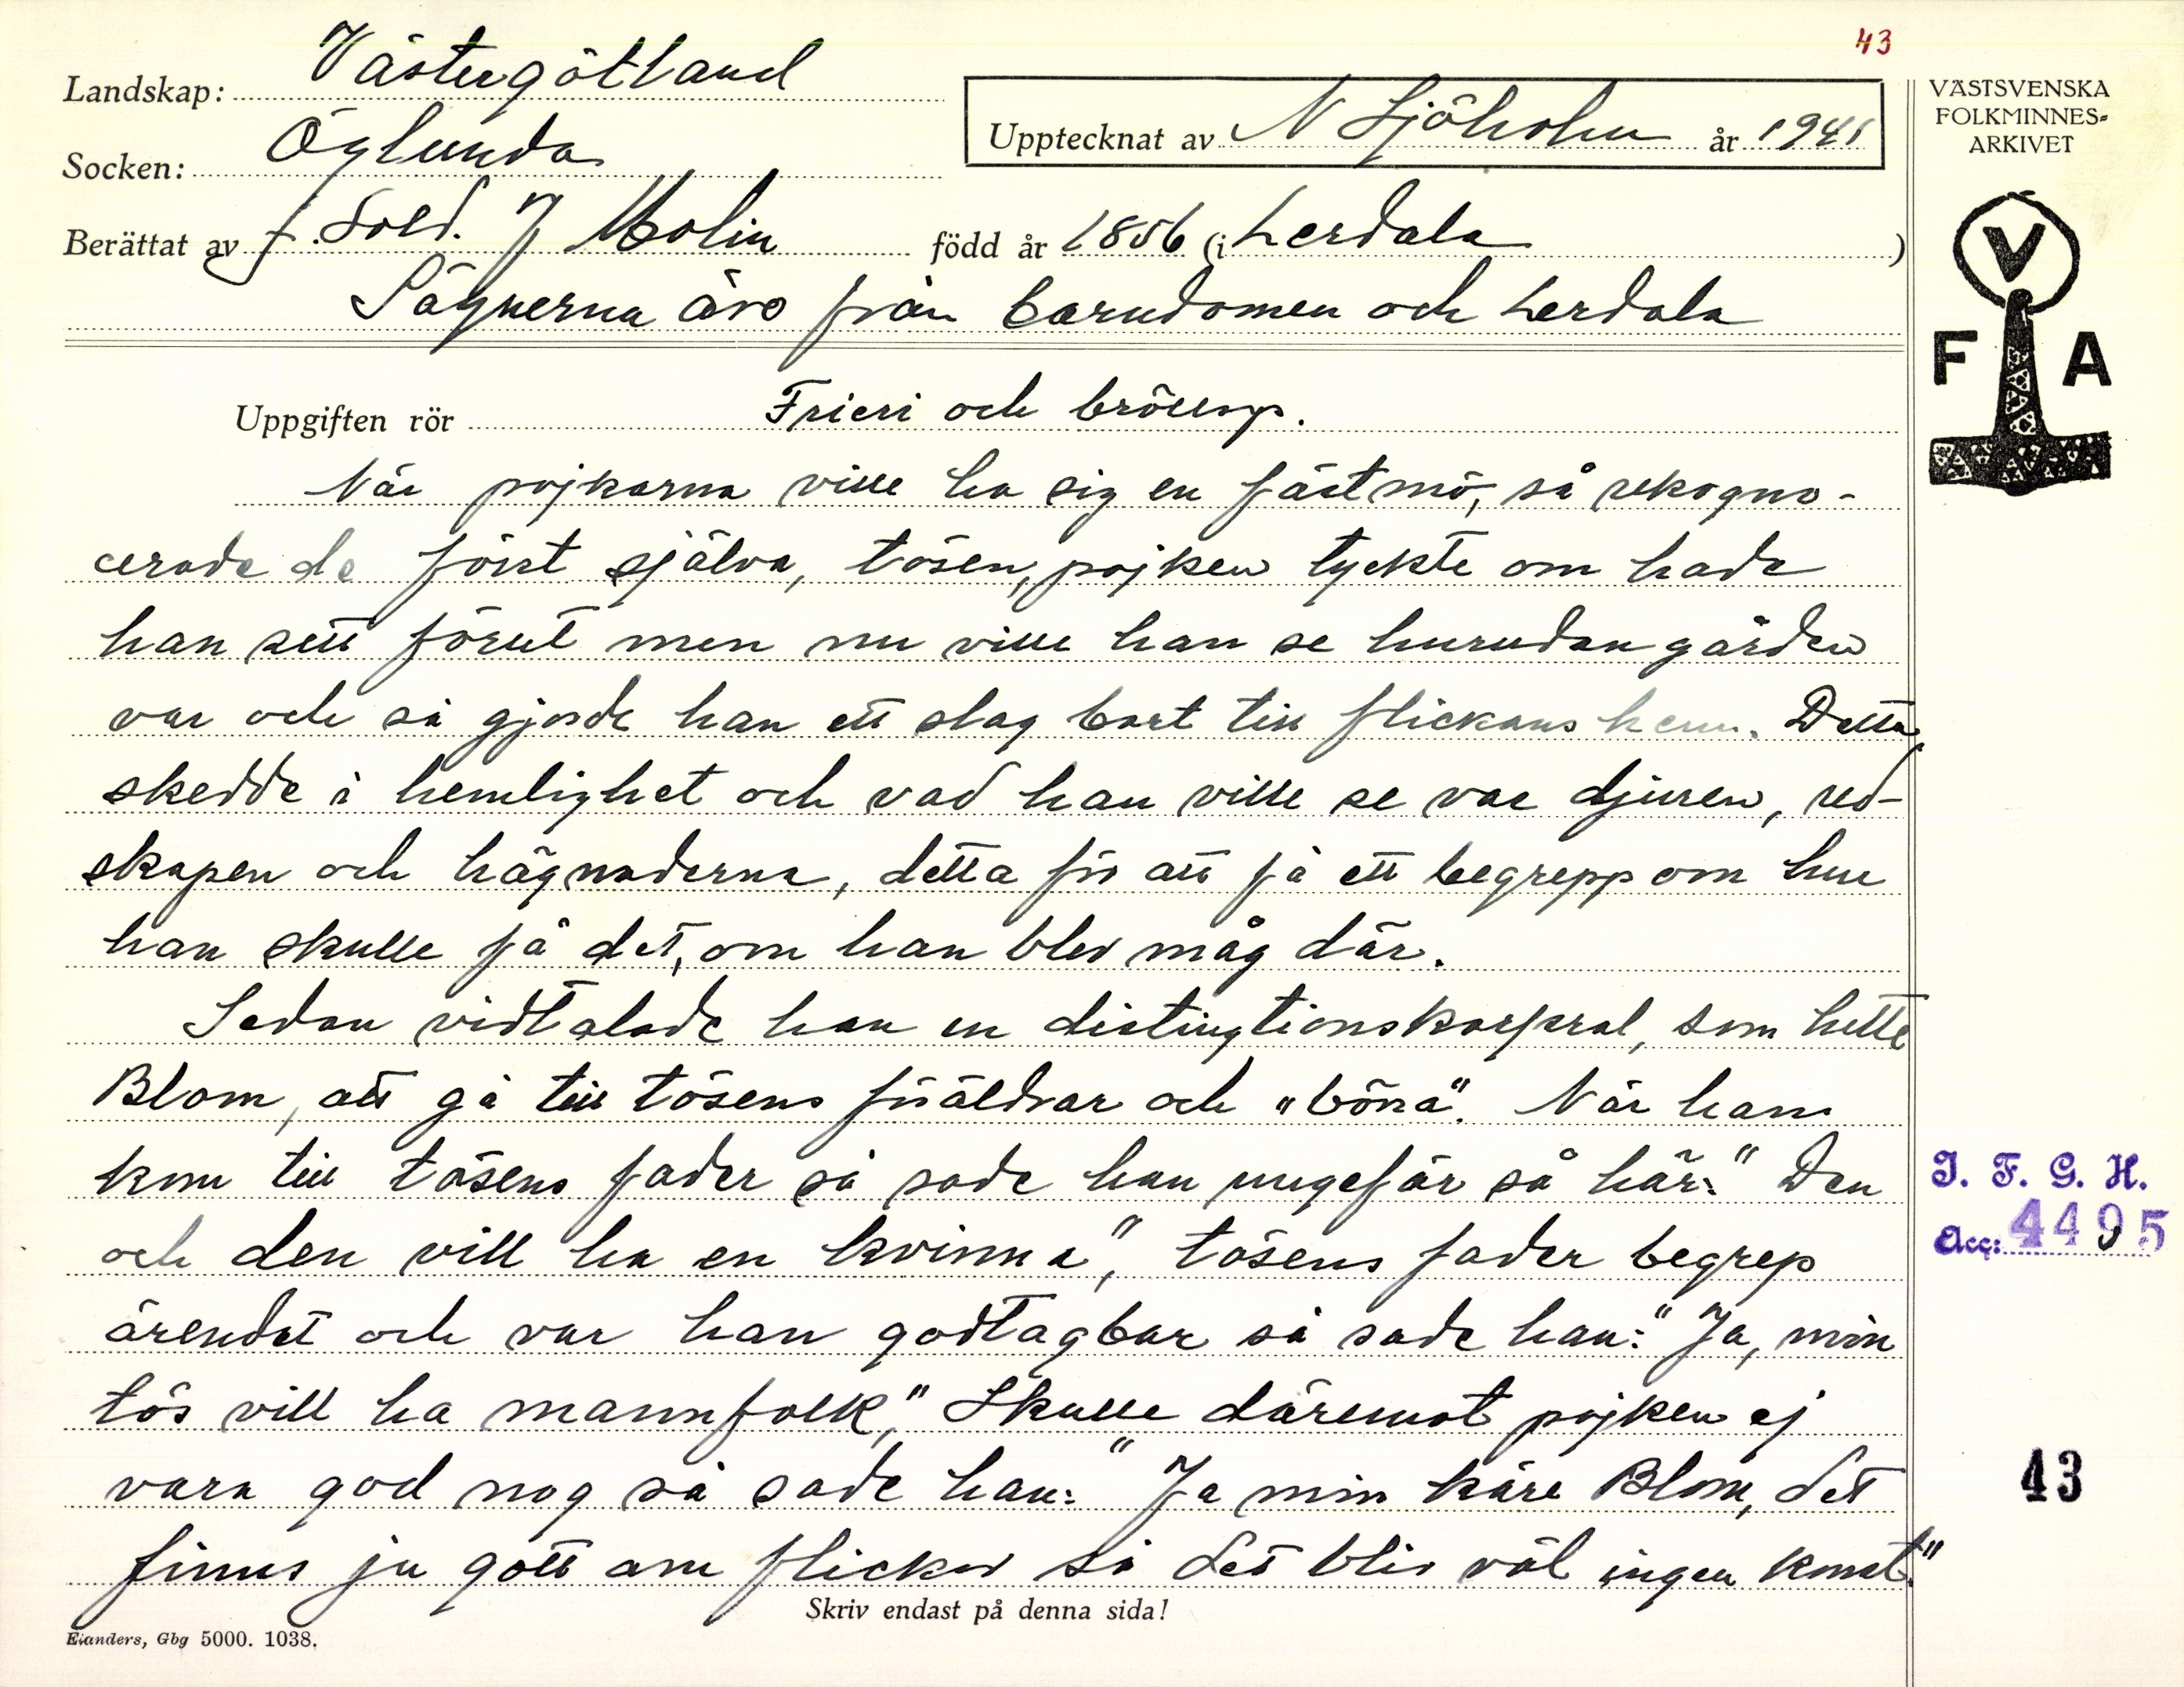 43
Landskap: Västergötland
Socken: Öglunda
Upptecknat av N Sjöholm år 1941
VÄSTSVENSKA
FOLKMINNES-
ARKIVET
Berättat av f. Sold. J Molin född år 1856 (i Lerdala)
Sägnerna äro från barndomen och Lerdala
V
F A
Uppgiften rör Frieri och bröllop.
När pojkarna ville ha sig en fästmö, så rekogno-
cerade de först själva, tösen, pojken tyckte om hade
han sett förut men nu ville han se hurudan gården
var och så gjorde han ett slag bort till flickans hem. Detta
skedde i hemlighet och vad han ville se var djuren, red-
skapen och hägnaderna, detta för att få ett begrepp om hur
han skulle få det, om han blev måg där.
Sedan vidtalade han en distingtionskorpral, som hette
Blom, att gå till tösens föräldrar och "böna". När han
kom till tösens fader så sade han ungefär så här: "Den
och den vill ha en kvinna", tösens fader begrep
ärendet och var han godtagbar så sade han: "Ja, min
tös vill ha mannfolk," Skulle däremot pojken ej
vara god nog så sade han: "Ja min käre Blom, det
finns ju gott om flickor så det blir väl ingen konst."
Skriv endast på denna sida!
Elanders, Gbg 5000. 1038.
I. F. G. H.
Acc: 4495
43